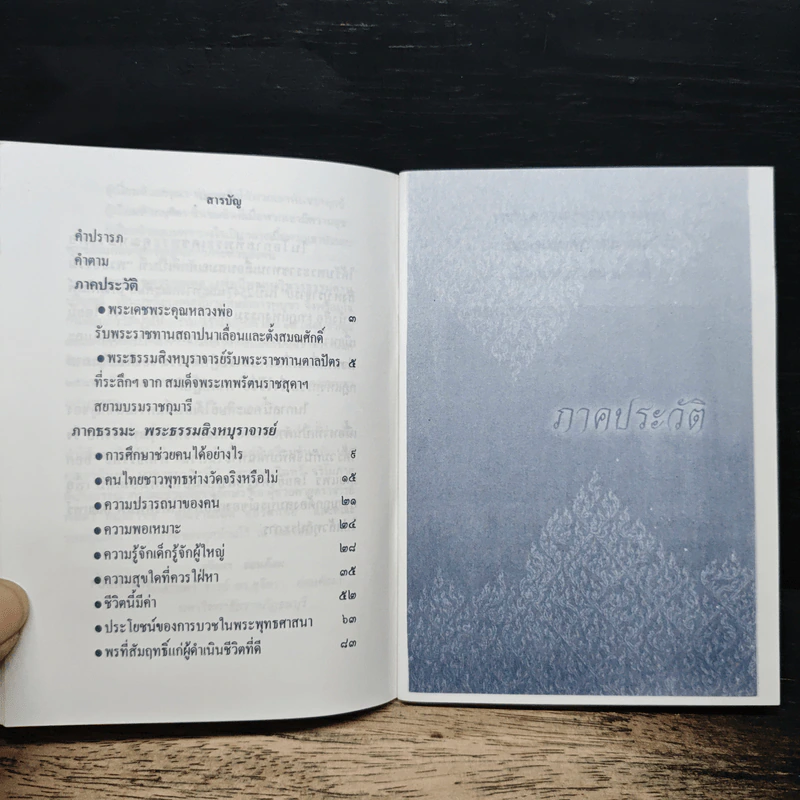 สารบัญ
คำปรารภ
คำตาม
ภาคประวัติ
● พระเดชพระคุณหลวงพ่อ ๓
รับพระราชทานสถาปนาเลื่อนและตั้งสมณศักดิ์
● พระธรรมสิงหบุราจารย์รับพระราชทานตาลปัตร ๕
ที่ระลึกฯ จาก สมเด็จพระเทพรัตนราชสุดาฯ
สยามบรมราชกุมารี
ภาคธรรมะ พระธรรมสิงหบุราจารย์
● การศึกษาช่วยคนได้อย่างไร ๙
● คนไทยชาวพุทธห่างวัดจริงหรือไม่ ๑๕
● ความปรารถนาของคน ๒๑
● ความพอเหมาะ ๒๔
● ความรู้จักเด็กรู้จักผู้ใหญ่ ๒๘
● ความสุขใดที่ควรใฝ่หา ๓๕
● ชีวิตนี้มีค่า ๕๒
● ประโยชน์ของการบวชในพระพุทธศาสนา ๖๓
● พรที่สัมฤทธิ์แก่ผู้ดำเนินชีวิตที่ดี ๘๓
ภาคประวัติ